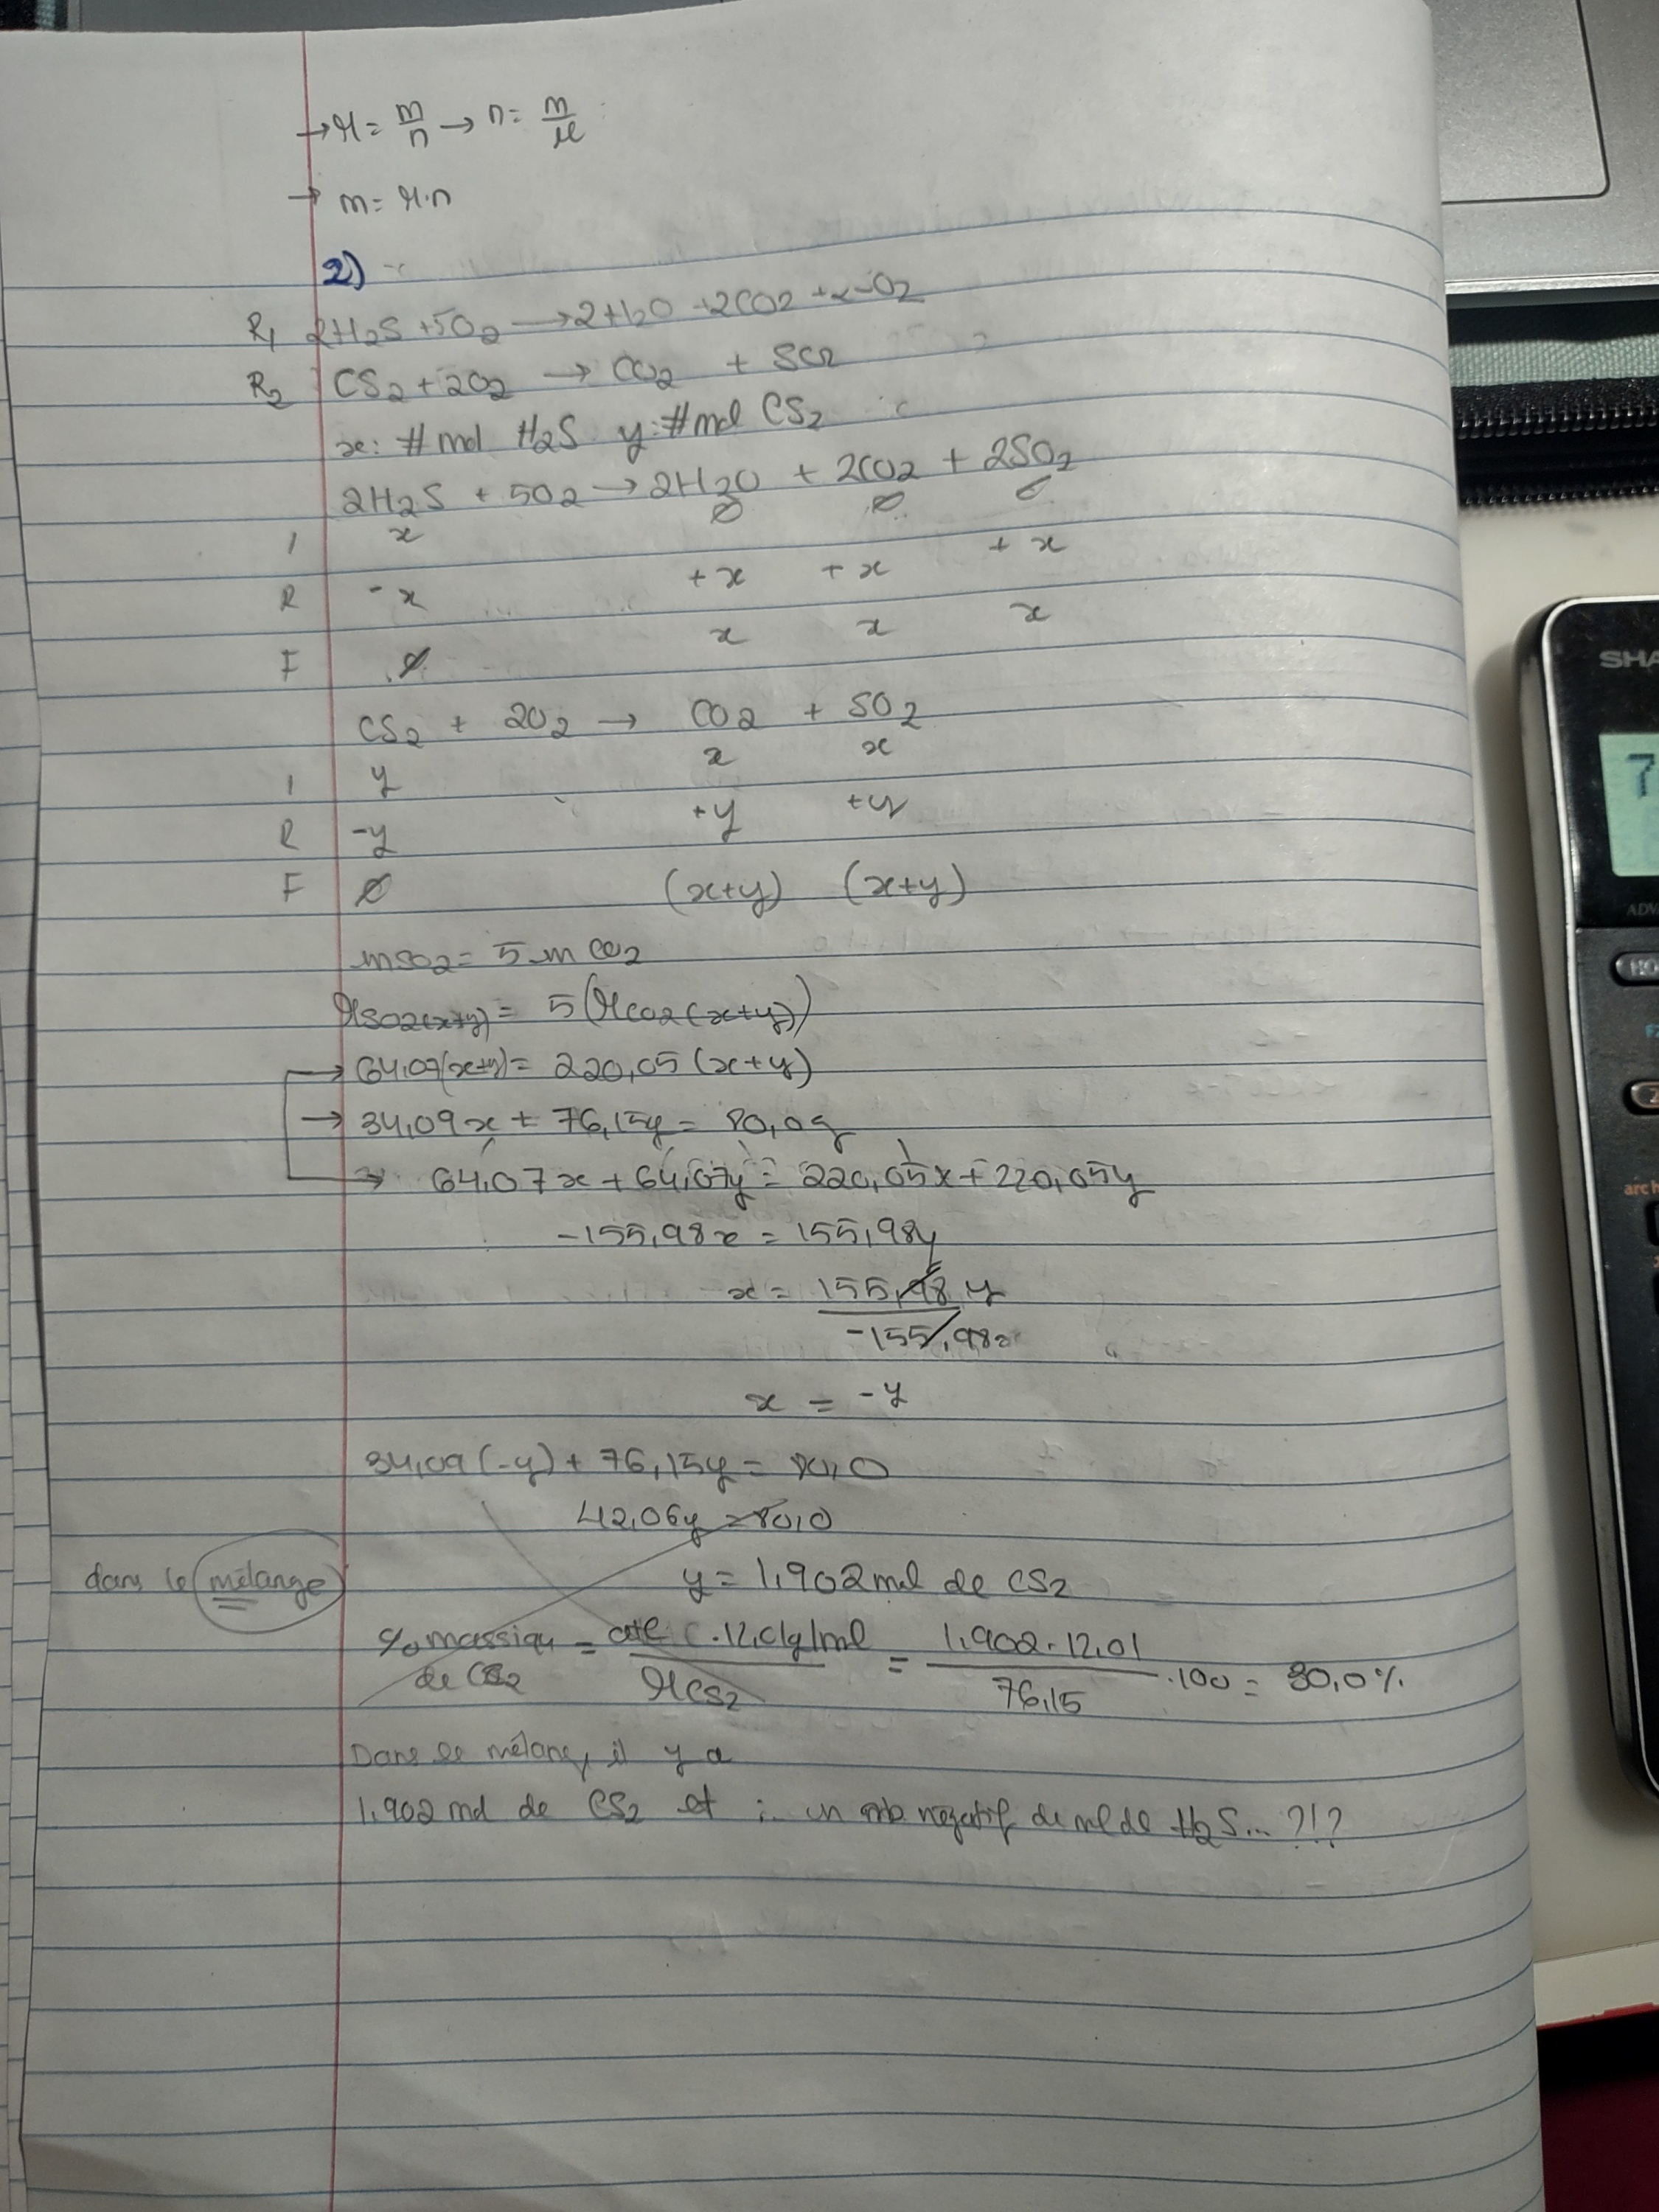 → M = m/n → n = m/M
→ m = M·n
2)
R1 2H2S + 5O2 → 2H2O + 2CO2 +
R2 CS2 + 2O2 → CO2 + SO2
x: # mol H2S y: # mol CS2
2H2S + 5O2 → 2H2O + 2CO2 + 2SO2
I x ∅ ∅ ∅
R -x +x +x +x
F ∅ x x x
CS2 + 2O2 → CO2 + SO2
I y x x
R -y +y +y
F ∅ (x+y) (x+y)
mSO2 = 5 m CO2
MSO2(x+y) = 5(MCO2(x+y))
→ 64,07(x+y) = 220,05 (x+y)
→ 34,09x + 76,15y = 80,0g
→ 64,07x + 64,07y = 220,05x + 220,05y
-155,98x = 155,98y
x = 155,98 y / -155,98
x = -y
34,09(-y) + 76,15y = 80,0
42,06y = 80,0
dans le mélange
y = 1,902 mol de CS2
% massique de CS2 = C · 12,01g/mol / MCS2 = 1,902 · 12,01 / 76,15 · 100 = 30,0%
Dans le mélange, il y a
1,902 mol de CS2 et un nb négatif de mol de H2S... ?!?
SHA
7
ADV
HO
F2
2
arc h